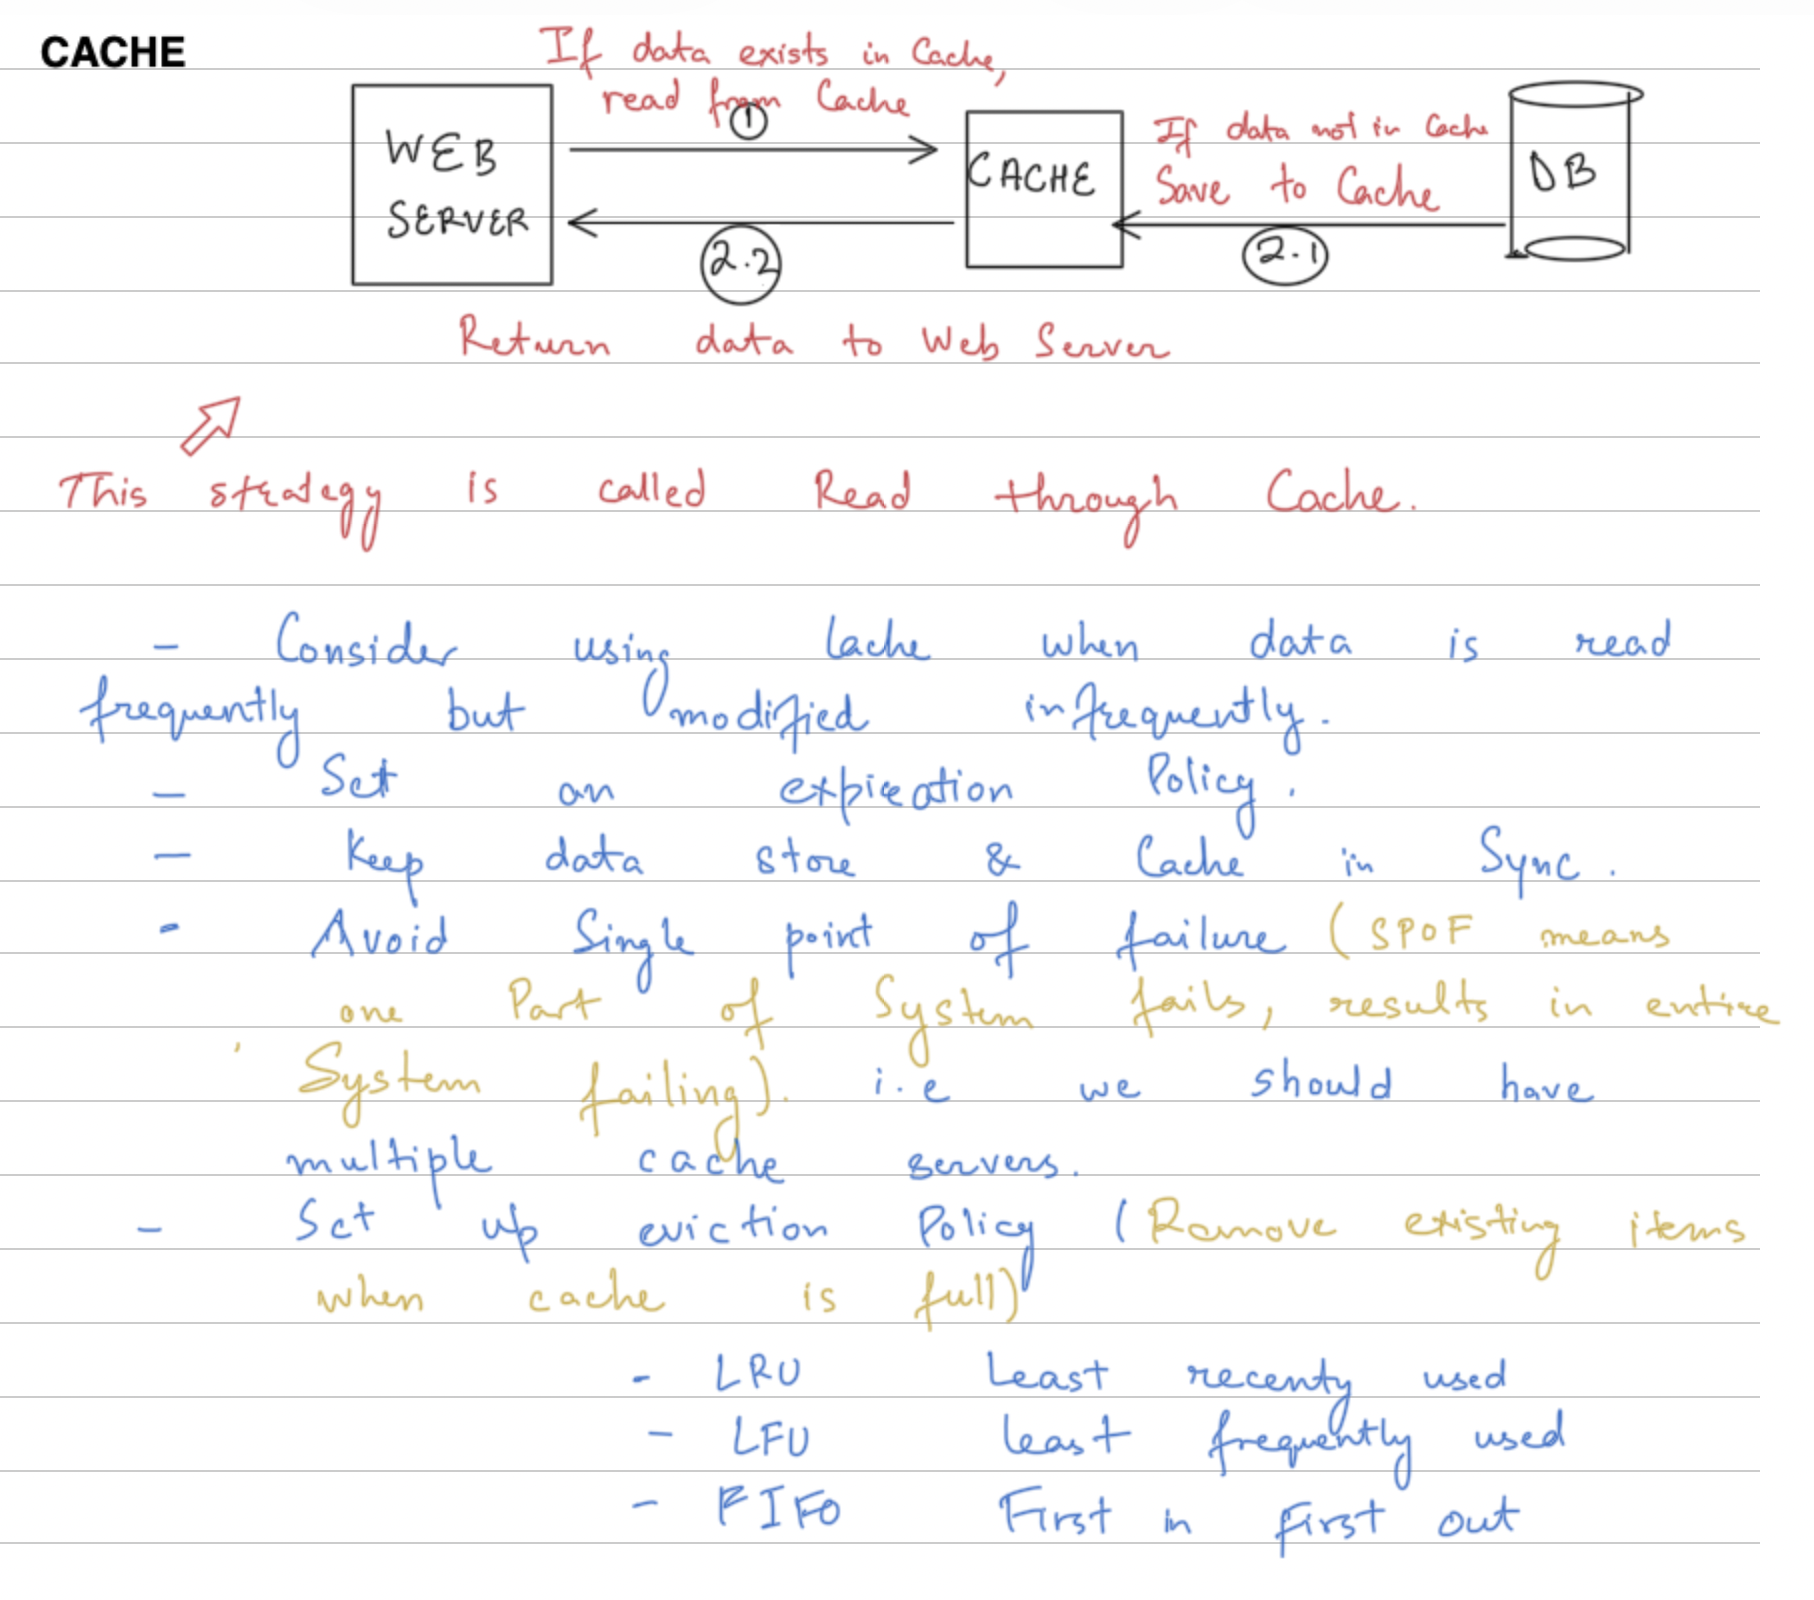 CACHE
If data exists in Cache,
read from Cache
1
WEB
SERVER
CACHE
If data not in Cache
Save to Cache
DB
2.2
2.1
Return data to Web Server
This strategy is called Read through Cache.
- Consider using Cache when data is read
frequently but modified infrequently.
- Set an expiration Policy.
- Keep data store & Cache in Sync.
- Avoid Single point of failure (SPOF means
one Part of System fails, results in entire
System failing). i.e we should have
multiple cache servers.
- Set up eviction Policy (Remove existing items
when cache is full)
- LRU Least recenty used
- LFU Least frequently used
- FIFO First in First out